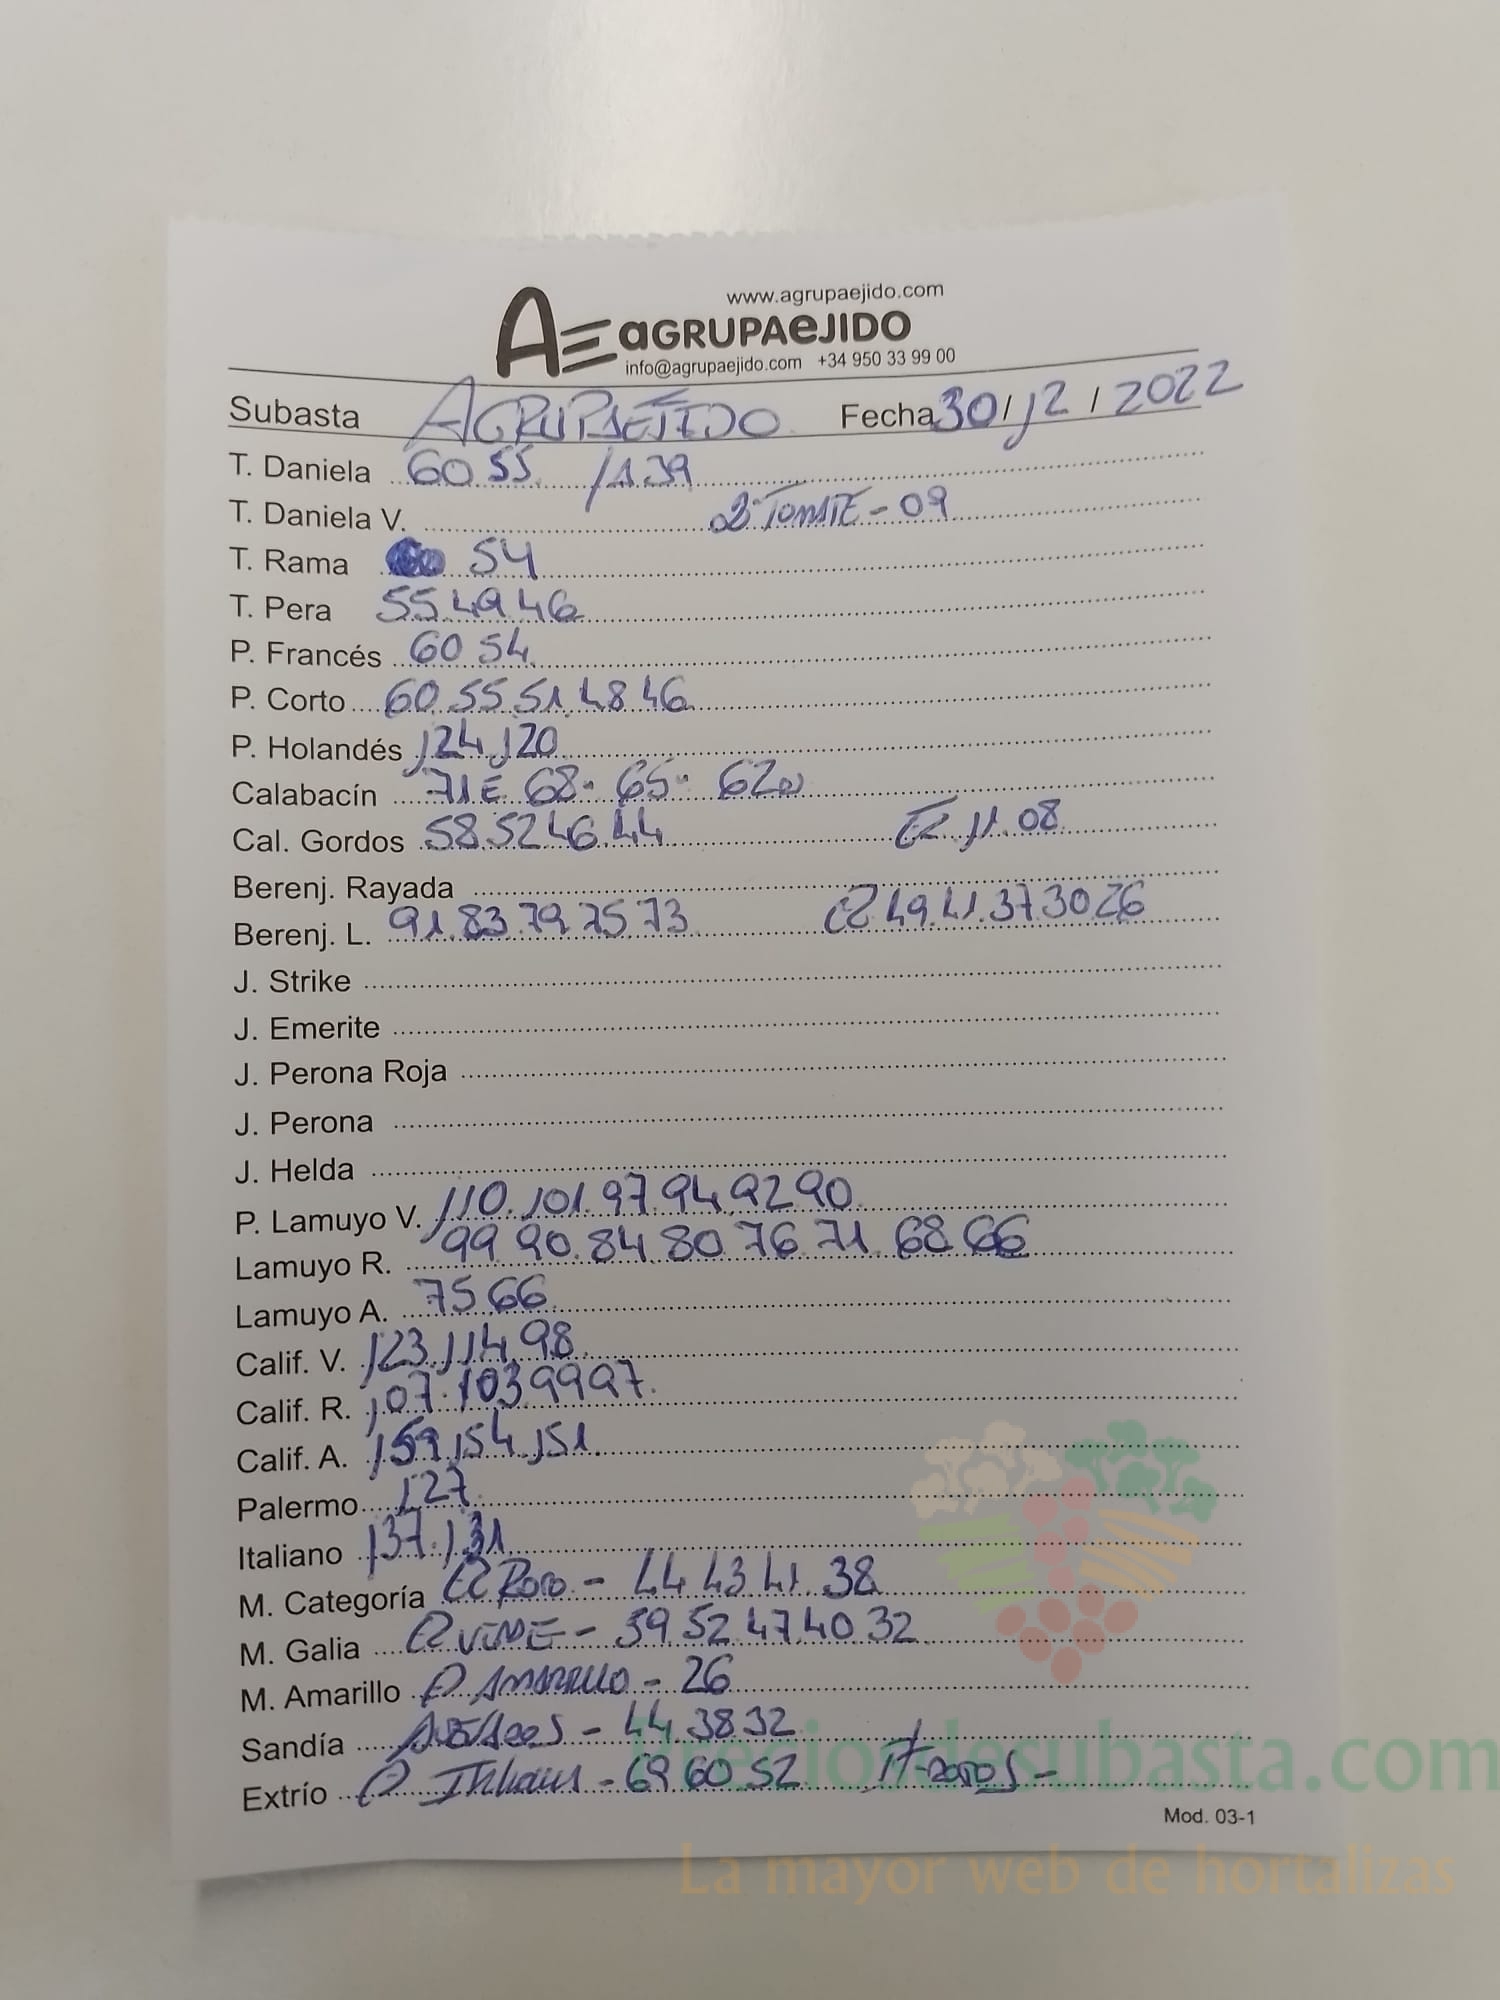 www.agrupaejido.com
AE aGRUPAeJIDO
info@agrupaejido.com +34 950 33 99 00
Subasta AGRUPAEJIDO Fecha 30/12/2022
T. Daniela 60 55 /139
T. Daniela V. 2ª TOMATE - 09
T. Rama 54
T. Pera 55 49 46
P. Francés 60 54
P. Corto 60 55 51 48 46
P. Holandés 124 120
Calabacín 71E 68 - 65 - 62
Cal. Gordos 58 52 46 44 11 08
Berenj. Rayada
Berenj. L. 91 83 79 75 73 49 41 37 30 26
J. Strike
J. Emerite
J. Perona Roja
J. Perona
J. Helda
P. Lamuyo V. 110 101 97 94 92 90
Lamuyo R. 99 90 84 80 76 71 68 66
Lamuyo A. 75 66
Calif. V. 123 114 98
Calif. R. 107 103 99 97
Calif. A. 159 154 151
Palermo 127
Italiano 137 131
M. Categoría ROJO - 44 43 41 38
M. Galia VERDE - 59 52 47 40 32
M. Amarillo AMARILLO - 26
Sandía - 44 38 32
Extrío - 69 60 52
Mod. 03-1
Preciosdesubasta.com
La mayor web de hortalizas